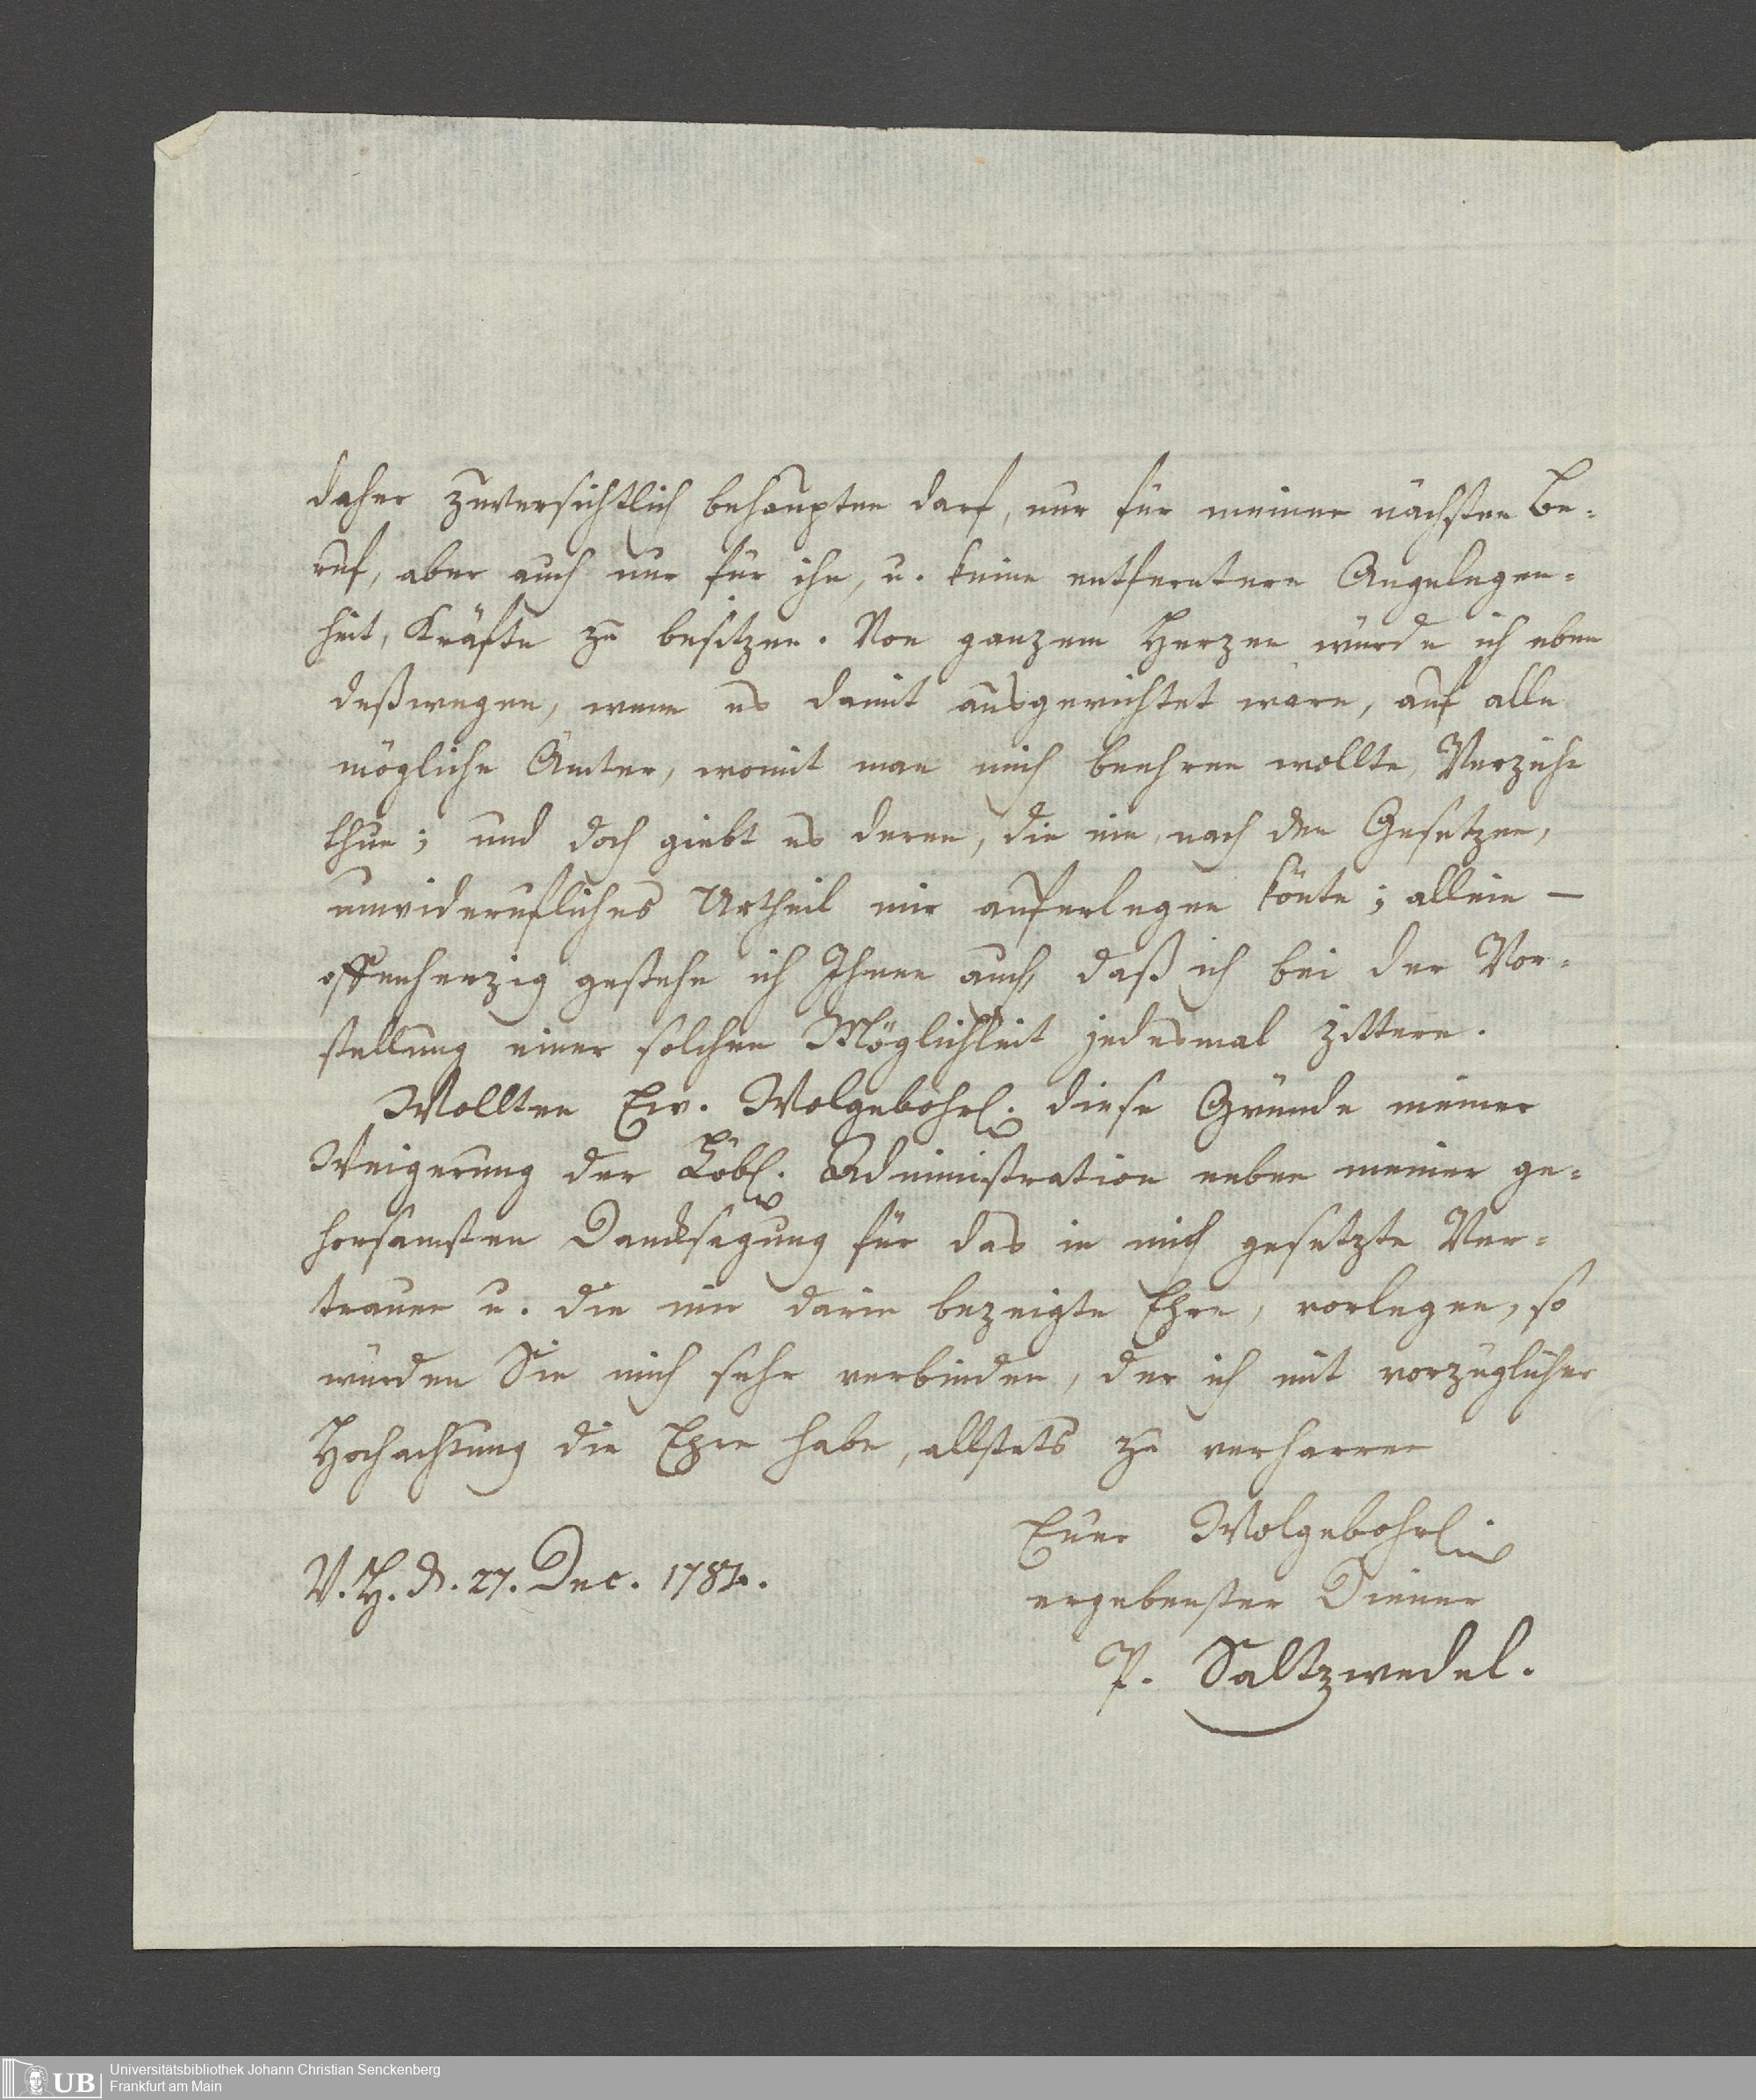 daher zuversichtlich behaupten darf, nur für meinen nächsten Be-
ruf, aber auch nur für ihn, u. keine entferntere Angelegen-
heit, Kräfte zu besitzen. Von ganzem Herzen würde ich eben
deßwegen, wenn es damit ausgerichtet wäre, auf alle
mögliche Ämter, womit man mich beehren wollte, Verzicht
thun; und doch giebt es deren, die ein, nach den Gesetzen,
unwiderufliches Urtheil mir auferlegen könte; allein –
offenherzig gestehe ich Ihnen auch, daß ich bei der Vor-
stellung einer solchen Möglichkeit jedesmal zittere.
Wollten Ew. Wolgebohrl. diese Gründe meiner
Weigerung der Löbl. Administration neben meiner ge-
horsamsten Danksagung für das in mich gesetzte Ver-
trauen u. die mir darin bezeigte Ehre, vorlegen, so
würden Sie mich sehr verbinden, der ich mit vorzüglicher
Hochachtung die Ehre habe, allstets zu verharren
Euer Wolgebohrl.
V. H. d. 27. Dec. 1784.
ergebenster Diener
P. Saltzwedel.
UB Universitätsbibliothek Johann Christian Senckenberg
Frankfurt am Main